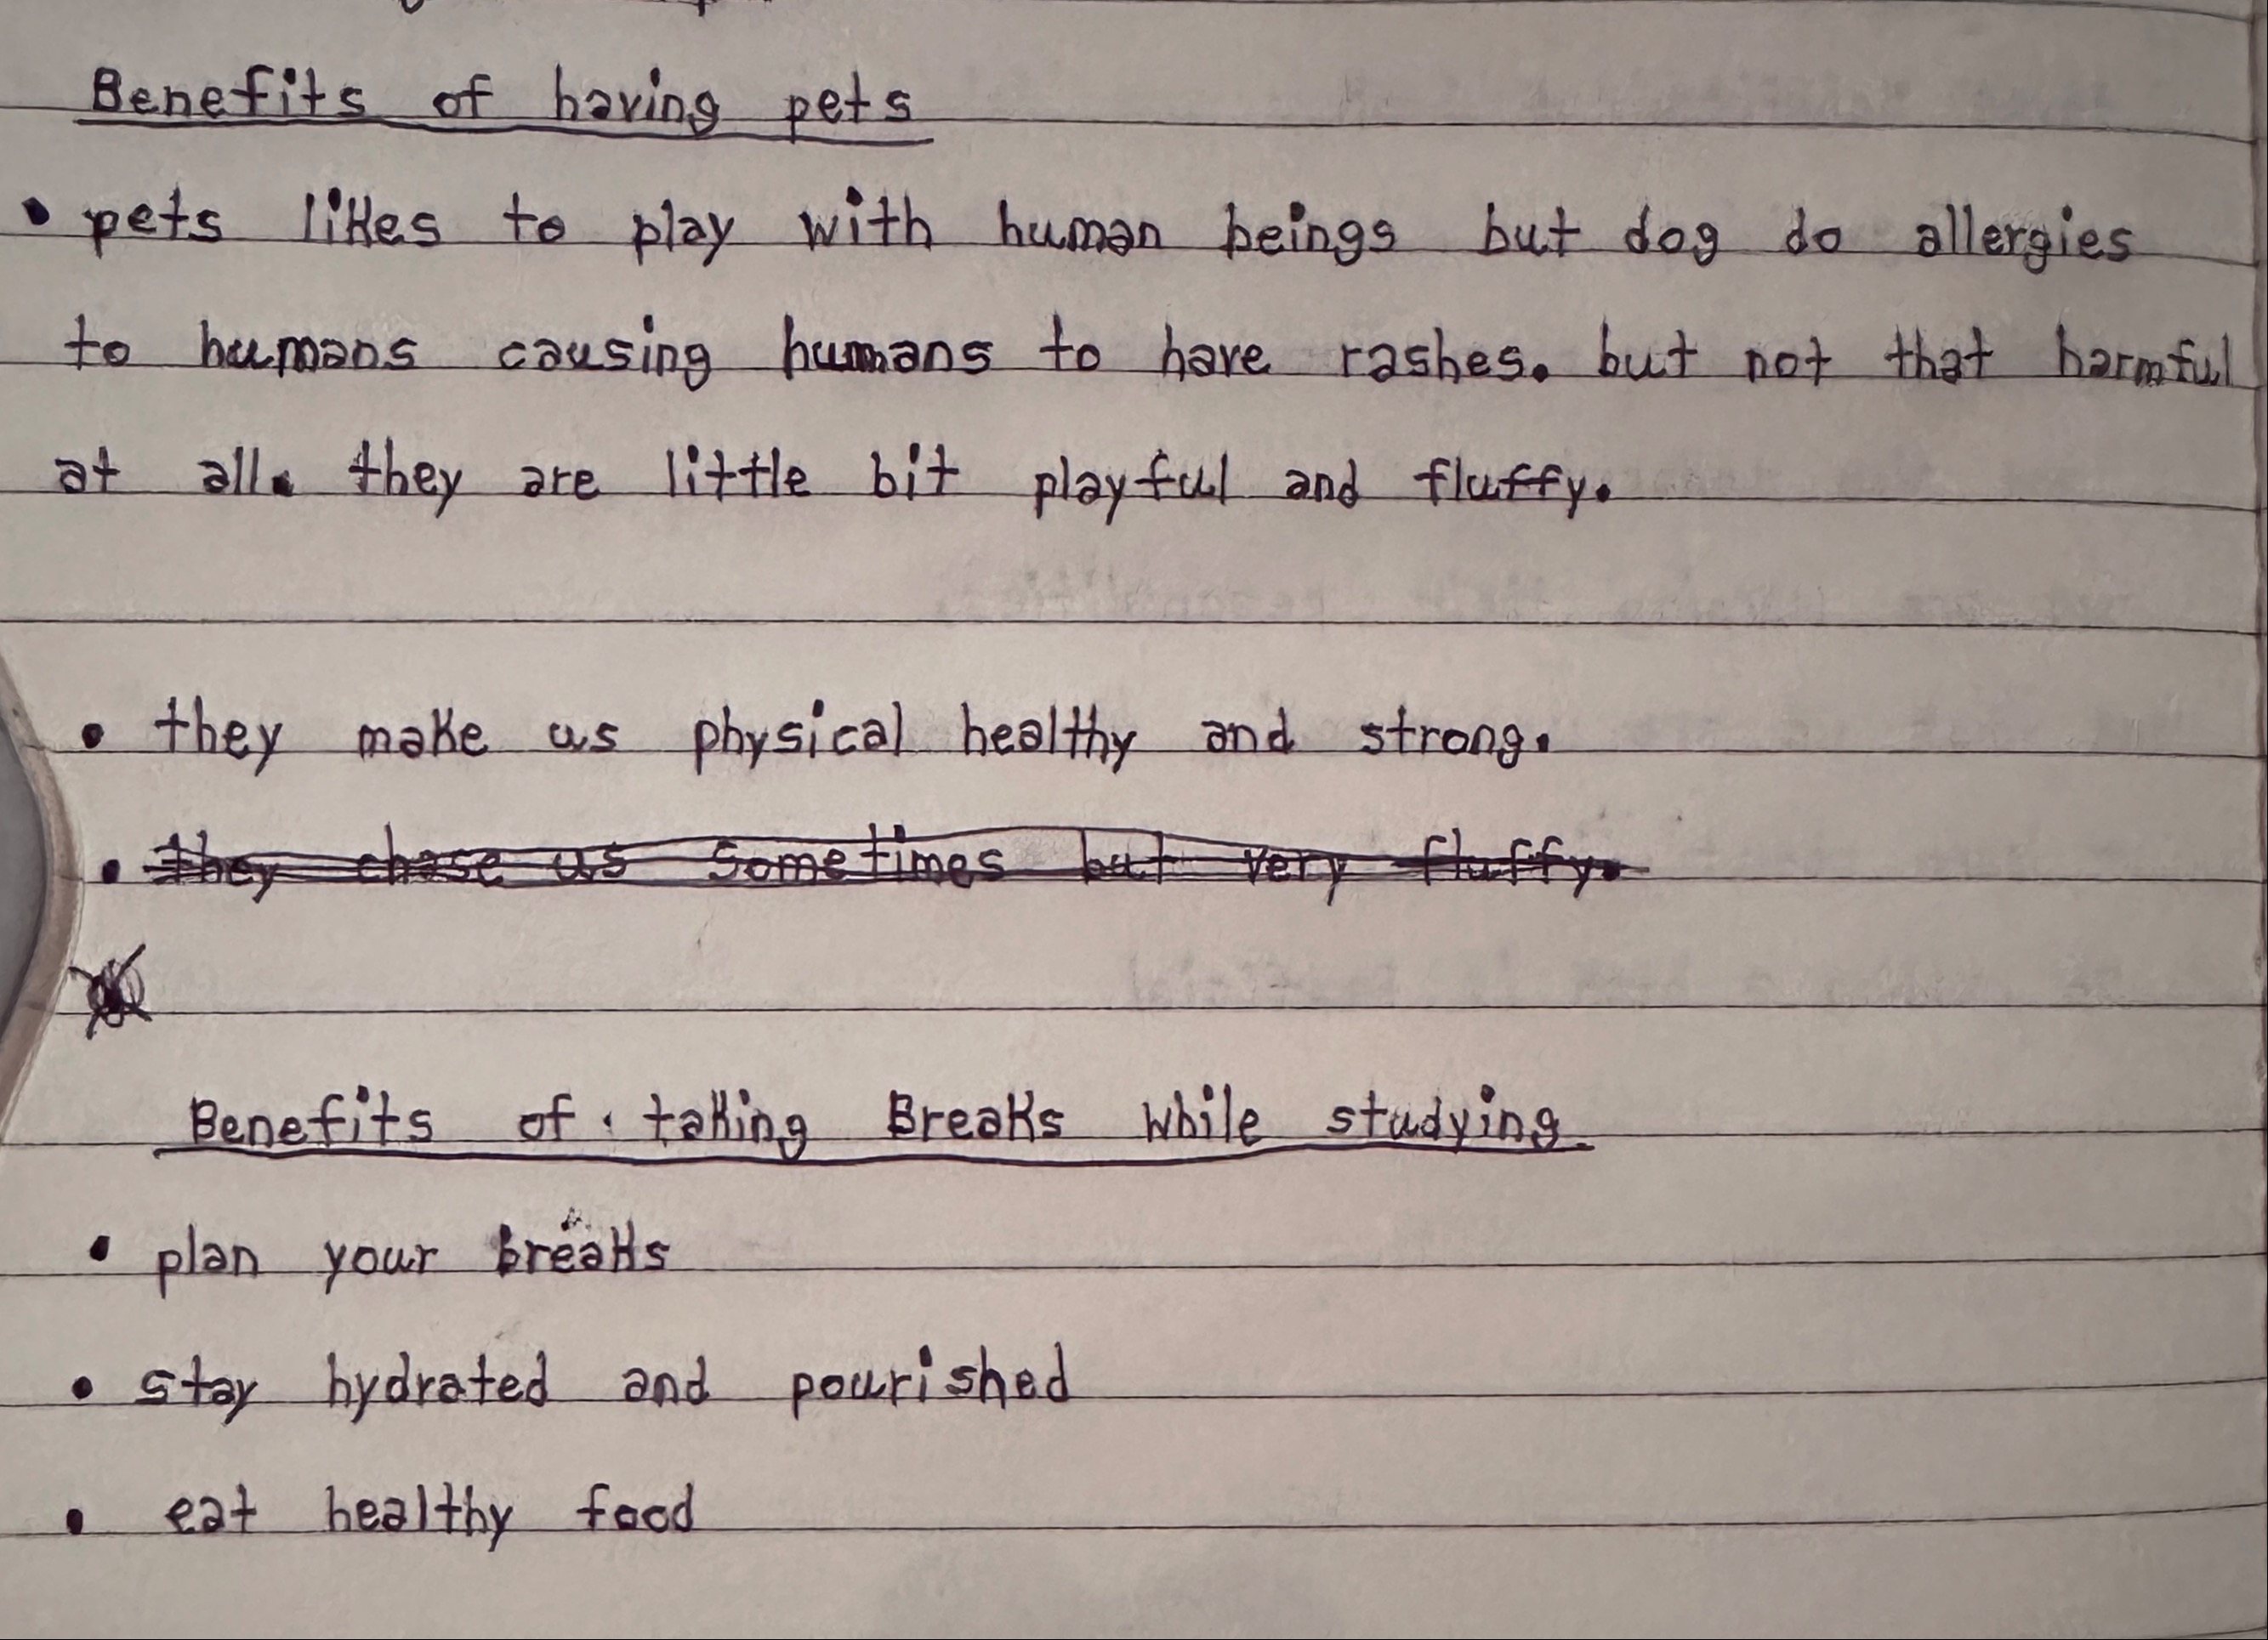 Benefits of having pets
• pets likes to play with human beings but dog do allergies
to humans causing humans to have rashes. but not that harmful
at all. they are little bit playful and fluffy.
• they make us physical healthy and strong.
• they chase us sometimes but very fluffy.
Benefits of taking Breaks while studying
• plan your breaks
• stay hydrated and pourished
• eat healthy food